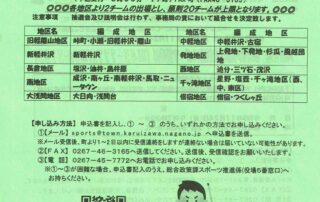 ○○○各地区より2チームの出場とし、原則20チームが上限となります。○○○
注意事項　抽選会及び説明会は行わず、事務局の責において組合せを決定致します。
地区名　編成名　地区名　編成名
旧軽離山地区　峠町・小瀬・旧軽井沢・離山　中軽井沢地区　中軽井沢・古宿
新軽井沢　新軽井沢　上発地・下発地・杉瓜・風越団地
長倉地区　塩沢・油井・鳥井原　西地区　追分・三ツ石・茂沢
南地区　成沢・南ヶ丘・南軽井沢・馬取・ニュータウン　千ヶ滝地区　星野・塩壺・千ヶ滝西区(西、中、東区)
大浅間地区　大日向・浅間台　借宿地区　借宿・つくしヶ丘
《申し込み方法》 申込書を記入し、①～③のうち、いずれかの方法でお申し込みください。
①【メール】 sports@town.karuizawa.nagano.jp へ申込書を送信。
※メール受信後、町より1～2日以内に受信連絡をしますが連絡が無い場合は届いていない可能性があります。
②【FAX】 0267-46-3165へ送信してください。送信後、受信確認をお願いいたします。
③【電 話】 0267-45-7772へお電話でお申し込みください。
※①～③が困難な場合、申込書記入のうえ、総合政策課スポーツ推進係(役場5番窓口)へ
お持ちください。